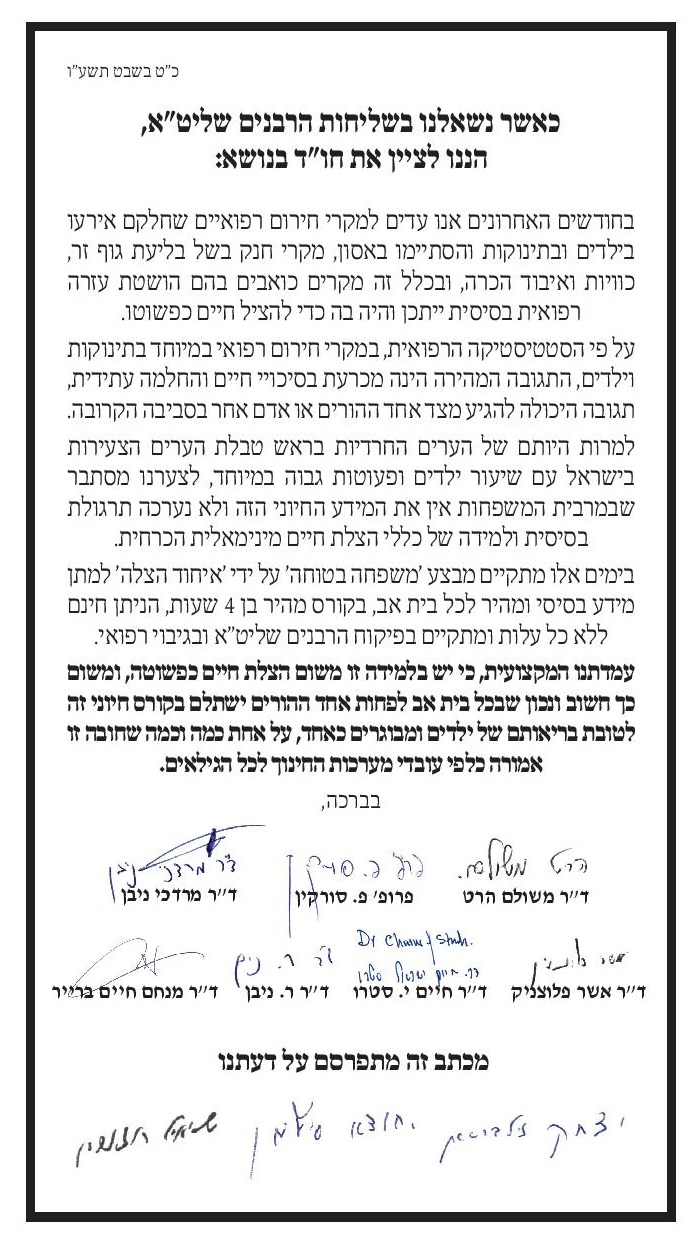 כ"ט בשבט תשע"ו
כאשר נשאלנו בשליחות הרבנים שליט"א,
הננו לציין את חו"ד בנושא:
בחודשים האחרונים אנו עדים למקרי חירום רפואיים שחלקם אירעו
בילדים ובתינוקות והסתיימו באסון, מקרי חנק בשל בליעת גוף זר,
כוויות ואיבוד הכרה, ובכלל זה מקרים כואבים בהם הושטת עזרה
רפואית בסיסית ייתכן והיה בה כדי להציל חיים כפשוטו.
על פי הסטטיסטיקה הרפואית, במקרי חירום רפואי במיוחד בתינוקות
וילדים, התגובה המהירה הינה מכרעת בסיכויי חיים והחלמה עתידית,
תגובה היכולה להגיע מצד אחד ההורים או אדם אחר בסביבה הקרובה.
למרות היותם של הערים החרדיות בראש טבלת הערים הצעירות
בישראל עם שיעור ילדים ופעוטות גבוה במיוחד, לצערנו מסתבר
שבמרבית המשפחות אין את המידע החיוני הזה ולא נערכה תרגולת
בסיסית ולמידה של כללי הצלת חיים מינימאלית הכרחית.
בימים אלו מתקיים מבצע 'משפחה בטוחה' על ידי 'איחוד הצלה' למתן
מידע בסיסי ומהיר לכל בית אב, בקורס מהיר בן 4 שעות, הניתן חינם
ללא כל עלות ומתקיים בפיקוח הרבנים שליט"א ובגיבוי רפואי.
עמדתנו המקצועית, כי יש בלמידה זו משום הצלת חיים כפשוטה, ומשום
כך חשוב ונכון שבכל בית אב לפחות אחד ההורים ישתלם בקורס חיוני זה
לטובת בריאותם של ילדים ומבוגרים כאחד, על אחת כמה וכמה שחובה זו
אמורה כלפי עובדי מערכות החינוך לכל הגילאים.
בברכה,
הרט משולם. ד"ר מרדכי ניבן
ד"ר משולם הרט פרופ' פ. סורקין ד"ר מרדכי ניבן
ד"ר ר. ניבן
ד"ר אשר פלוצניק ד"ר חיים י. סטרו ד"ר ר. ניבן ד"ר מנחם חיים ברייר
מכתב זה מתפרסם על דעתנו
יצחק זילברשטיין